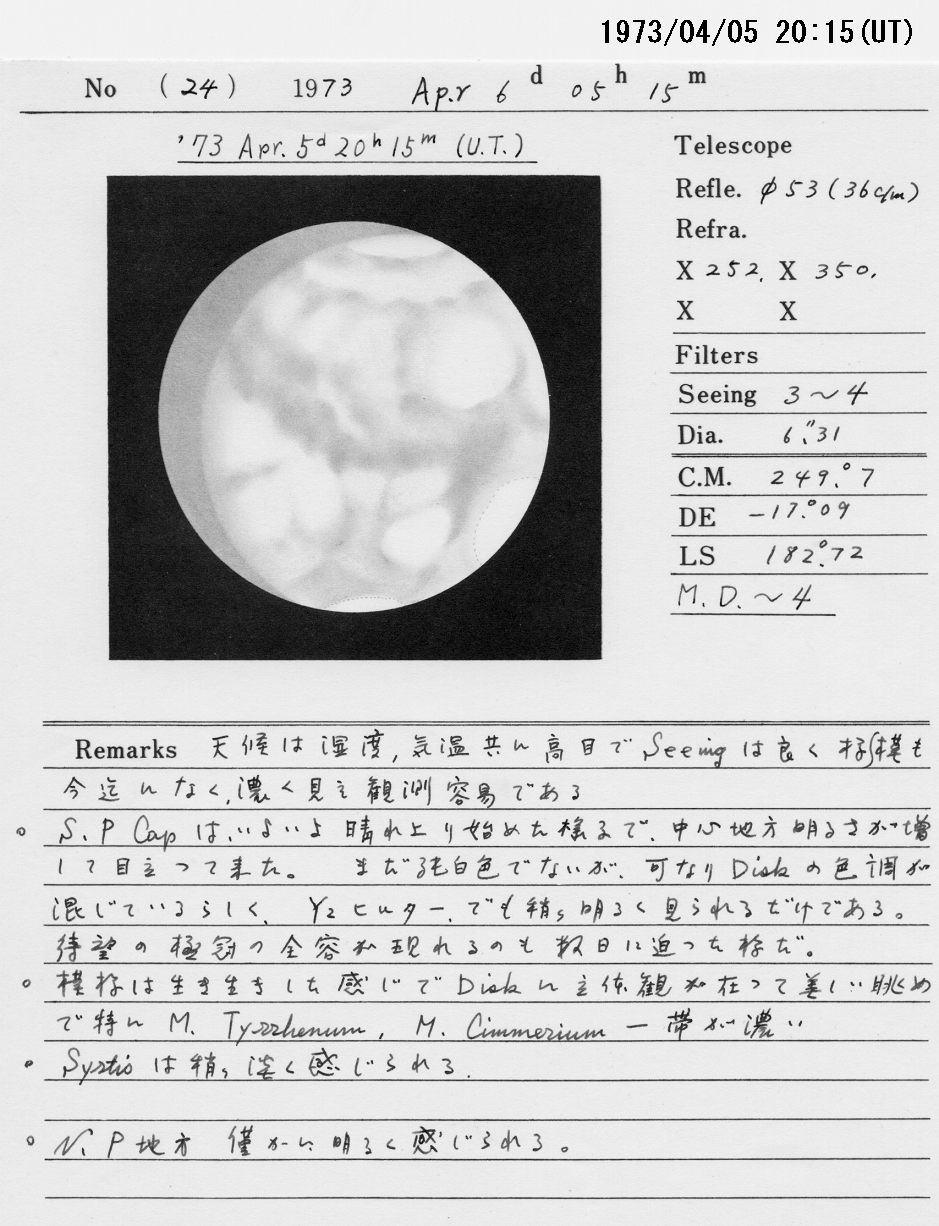 1973/04/05 20:15(UT)
No (24) 1973 Apr 6 d 05 h 15 m
'73 Apr. 5d 20h 15m (U.T.)
Telescope
Refle. φ53(36c/m)
Refra.
X 252. X 350.
X X
Filters
Seeing 3~4
Dia. 6."31
C.M. 249.°7
DE -17.°09
LS 182.°72
M.D. ~4
Remarks 天候は湿度,気温共に高目でSeeingは良く模様も
今迄になく,濃く見え観測容易である
○ S.P Capは,いよいよ晴れ上り始めた様子で,中心地方明るさが増
して目立って来た。 まだ純白色でないが,可なりDiskの色調が
混じているらしく, Y2ヒルター,でも稍々明るく見られるだけである。
待望の極冠の全容が現れるのも数日に迫った様だ。
○ 模様は生き生きした感じでDiskに立体観が在って美しい眺め
で特に M. Tyrrhenum, M. Cimmerium 一帯が濃い
○ Syrtisは稍々淡く感じられる.
○ N.P地方 僅かに明るく感じられる。